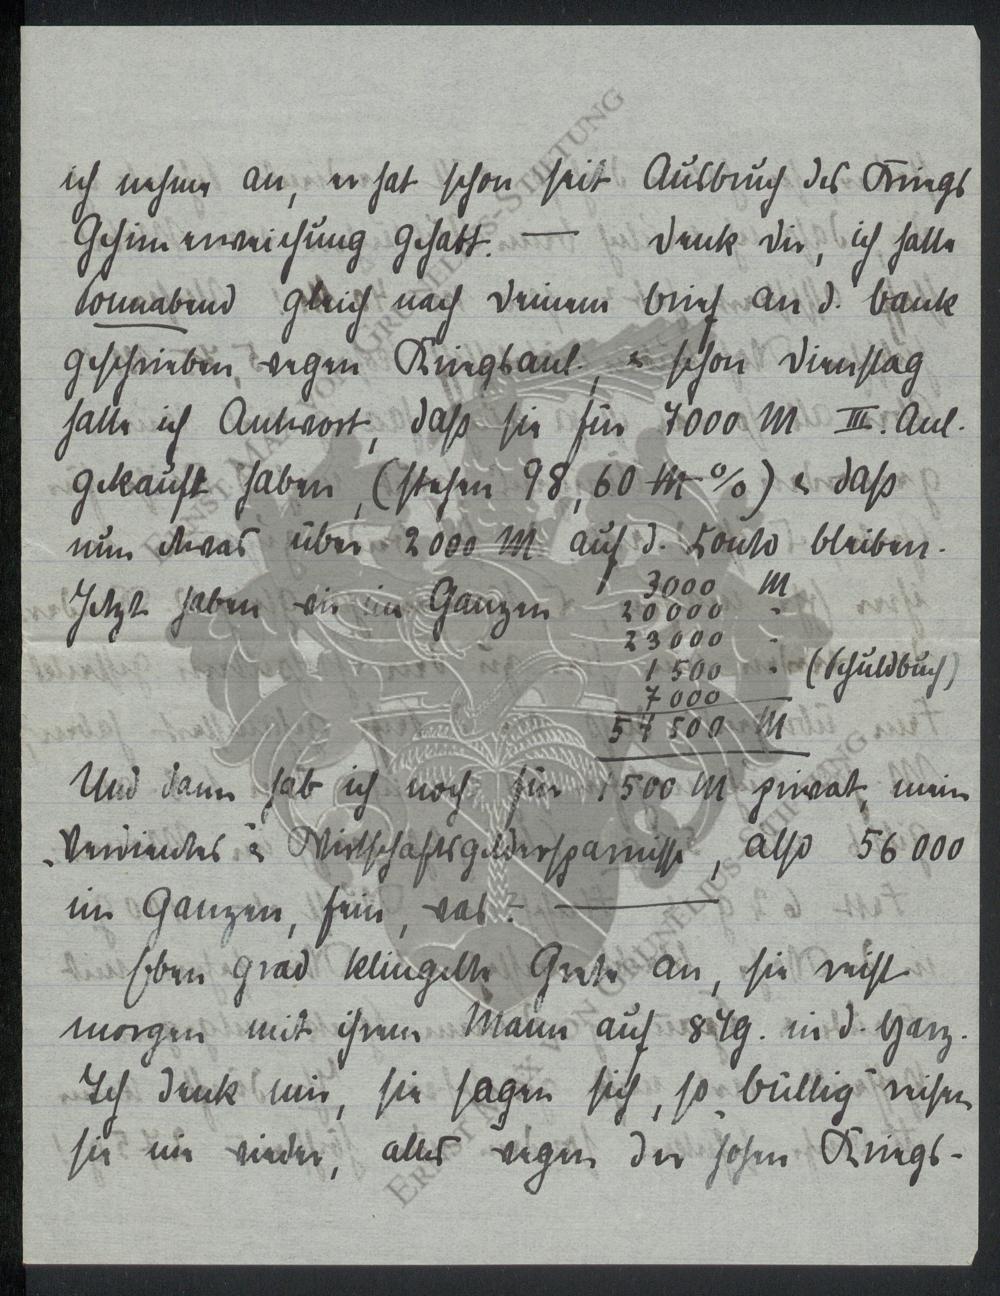 ich nehme an, er hat schon seit Ausbruch des Kriegs
Gehirnerweichung gehabt. — Denk Dir, ich hatte
Sonnabend gleich nach Deinem Brief an d. Bank
geschrieben, wegen Kriegsanl., u schon Dienstag
hatte ich Antwort, daß sie für 7000 M III. Anl.
gekauft haben, (stehen 98,60 M %) u daß
nun etwas über 2000 M auf d. Conto bleiben.
Jetzt haben wir im Ganzen 3000 M
20000 "
23000 "
1500 " (Schuldbuch)
7000
54500 M
Und dann hab ich noch für 1500 M privat, mein
"Verdientes u Wirtschaftsgeldersparnisse, also 56000
im Ganzen, fein, was? —
Eben grad klingelte Grete an, sie reist
morgen mit ihrem Mann auf 8 Tg. in d. Harz.
Ich denk mir, sie sagen sich, so "billig" reisen
sie nie wieder, alles wegen der hohen Kriegs-
ERNST MAX VON GRUNELIUS-STIFTUNG
ERNST MAX VON GRUNELIUS-STIFTUNG